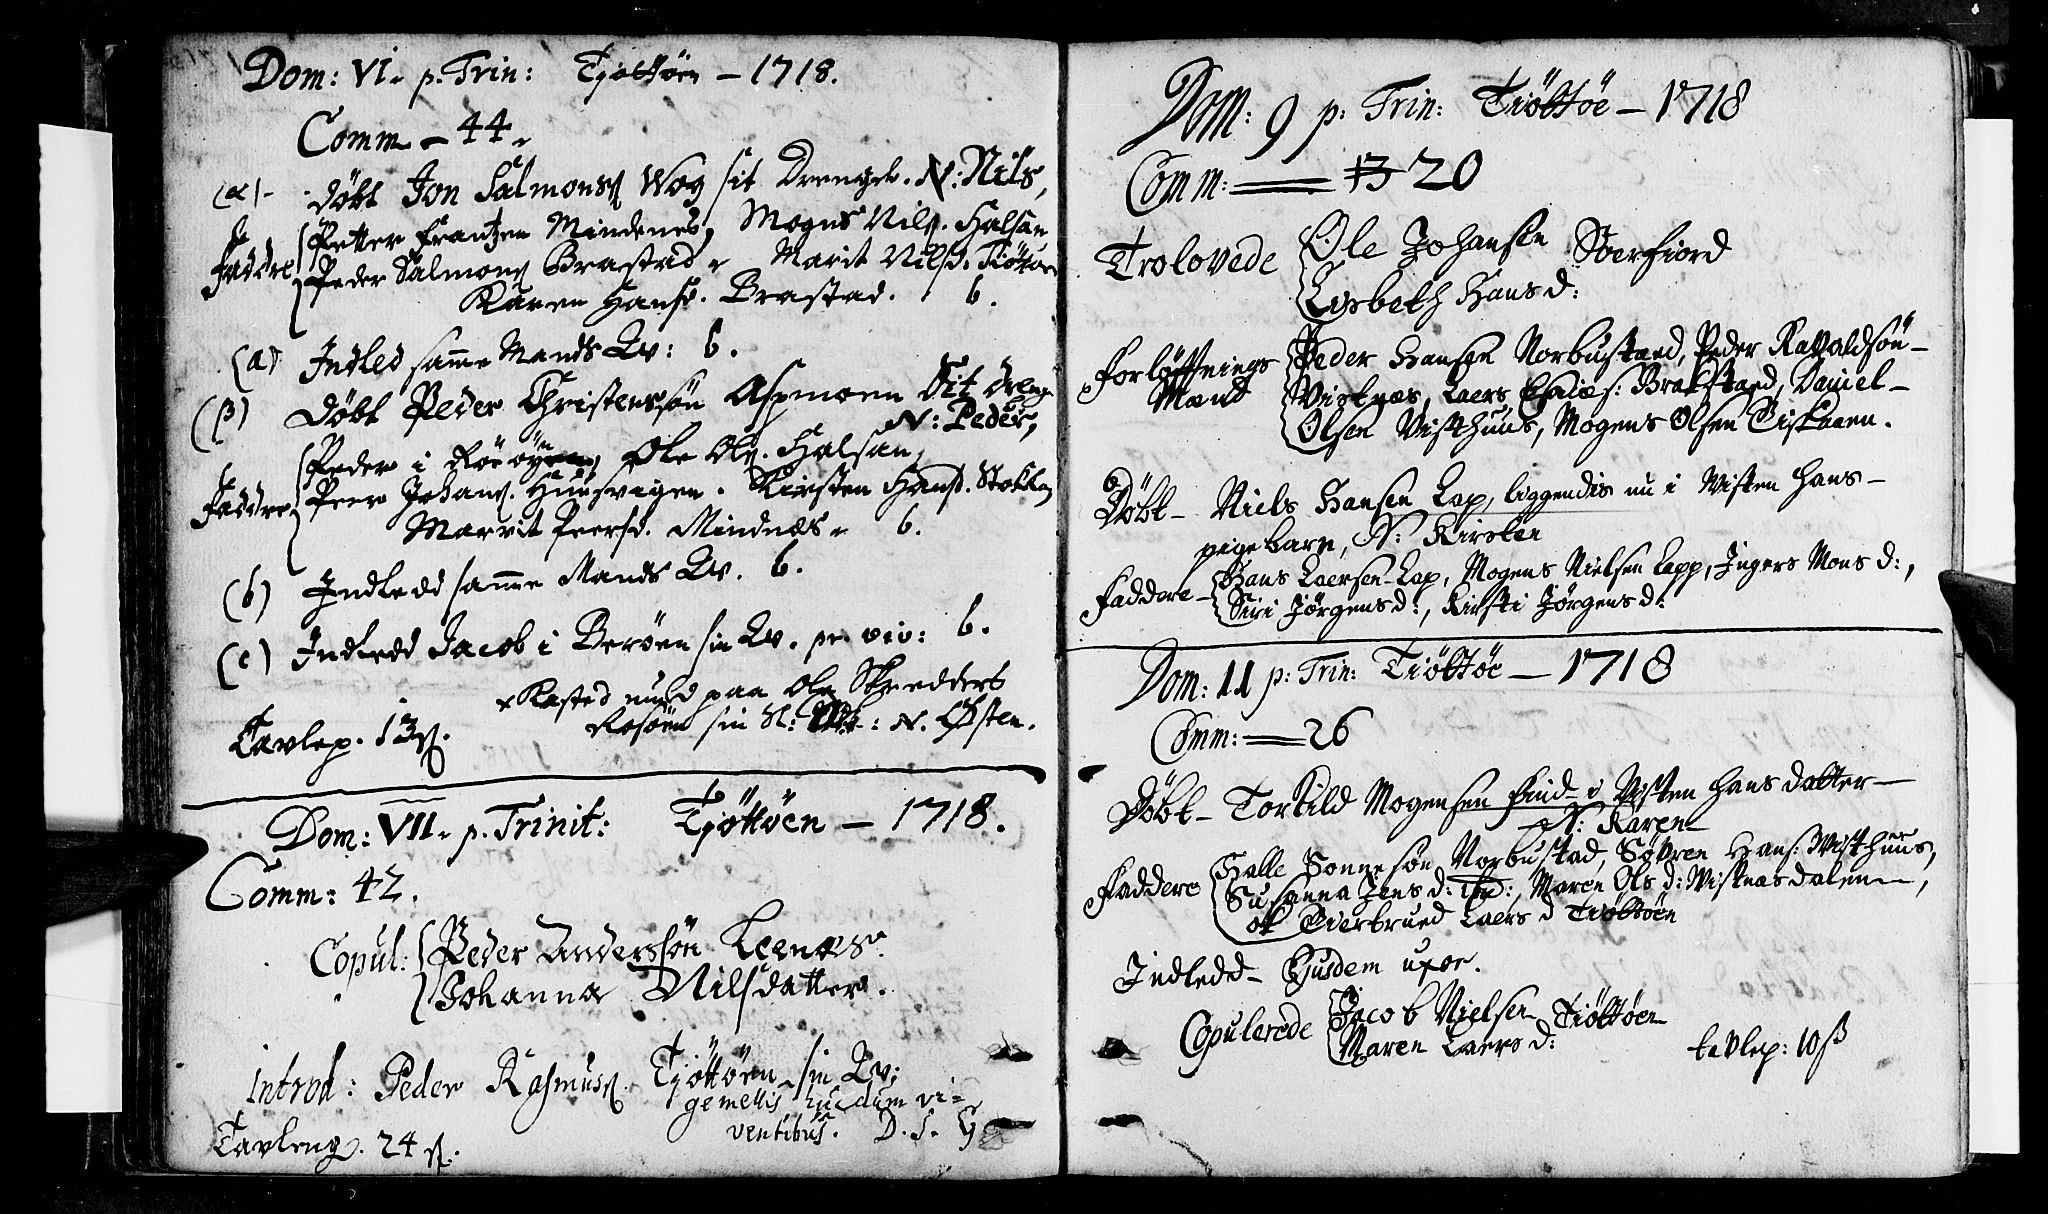 Dom: VI. p. Trin: Tjøttøen – 1718.
Comm – 44.
(α) – Døbt Jon Salmons Wog sit Drengeb. N: Nils,
Petter Frantzen Mindenes, Mogns Nils. Halsan
Faddre Peder Salmons Brastad. Marit Nilsd. Tiøtøen
Karen Hansd. Brastad. 6.
(a) Indled samme Mands Qv: 6.
(β) Døbt Peder Christenssøn Aspmoen Sit dreng
b. N: Peder,
Peder i Rørøyen, Ole Ols. Halsan,
Faddre Peer Johans. Huusvigen. Kirsten Hansd. Stokka
Marrit Peersd. Mindnæs. 6.
(b) Indledd samme Mands Qv. 6.
(c) Indledd Jacob i Berøen sin Qv. pr. viv: 6.
Kasted muld paa Ole Skredders
Rosøen sin N. Østen.
Tavlep. 13 s.
Dom: VII. p. Trinit: Tjøttøen – 1718.
Comm: 42.
Copul: Peder Anderssøn Leenæs.
Johanna Nilsdatter.
introd: Peder Rasmuss. Tjøttøen sin Qv:
gemellis vi-
ventibus. D. S. G
Tavleng. 24 s.
Dom: 9 p: Trin: Tiøttøe – 1718
Comm: 20
Trolovede Ole Johansen Soerfiord
Lisbeth Hansd:
Forløftnings Peder Hansen Norbustaed, Peder Ravaldsøn –
Mænd Vistnæs, Laers Esaiæs: Brakstaed, Daniel –
Olsen Visthuus, Mogens Olsen Tiskaaen.
Døbt – Niels Hansen Lap, liggendis nu i Visten hans –
pigebarn, N: Kirsten
Faddere – Hans Laersen Lap, Mogens Nielsen Lapp, Ingers Mons d:,
Siri Jørgensd:, Kirsti Jørgensd:
Dom: 11 p: Trin: Tiøttøe – 1718
Comm: 26
Døbt – Torkild Mogensen Find i Visten hans datter –
N: Karen
Faddere Halle Sonnesøn Norbustad, Søvren Hans: Visthuus,
Susanna Jensd: Ibd:, Maren Olsd: Vistnæsdalen,
ok Giertrued Laersd Tiøttøen
Indledd – Ejusdem uxor.
Copulerede Jacob Nielsen Tiøttøen
Maren Laers d:
tavlep: 10 ß